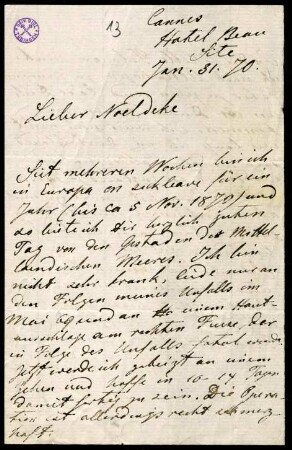 13
Cannes
Hotel Beau
Site
Jan. 31. 70.
Lieber Noeldeke
Seit mehreren Wochen bin ich
in Europa on sickleave für ein
Jahr (bis ca 5 Nov. 1870) und
so biete ich dir herzlich guten
Tag von den Gestaden des Mittel
ländischen Meeres. Ich bin
nicht sehr krank, leide nur an
den Folgen meines Unfalls im
Mai 69 und an einem Haut-
ausschlage am rechten Fusse, der
in Folge des Unfalls
Jetzt werde ich geheizt an einem
Zehen und hoffe in 10-14 Tagen
damit fertig zu sein. Die Opera-
tion ist allerdings recht schmerz-
haft.